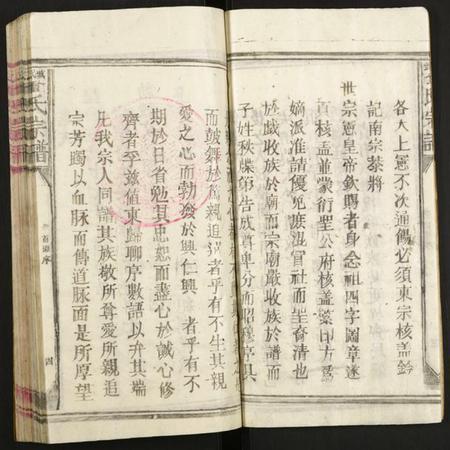 各大上憲不次通飭必須東宗核盖鈐
記南宗恭將
世宗憲皇帝欽賜者身念祖四字圖章遂
百核盖並蒙衍聖公府核盖鑒印方為
嫡派准請優免嚴混冒社而奎裔清也
於戲收族於廟而宗廟嚴收族於譜而
子姓秩牒第告成尊卑分而昭穆序具
而鼓舞於篤親追遠者乎有不生其親
愛之心而勃發於興仁興 者乎有不
期於日省勉其忠恕而盡心於誠心修
齊者乎兹值東歸聊序數語以弁其端
凡我宗人同譜其族敬所尊愛所親追
宗芳躅以血脉而傳道脉面是所厚望
氏宗譜
序
四